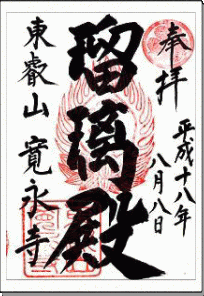 奉拝
平成十八年
八月八日
瑠璃殿
東叡山 寛永寺